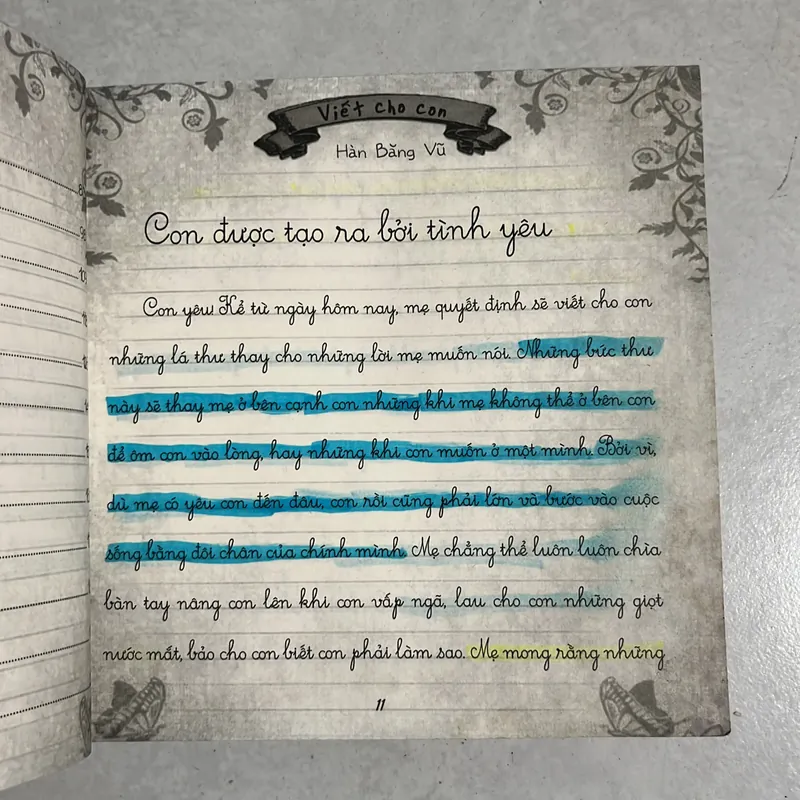 Viết cho con
Hàn Băng Vũ
Con được tạo ra bởi tình yêu
Con yêu! Kể từ ngày hôm nay, mẹ quyết định sẽ viết cho con
những lá thư thay cho những lời mẹ muốn nói. Những bức thư
này sẽ thay mẹ ở bên cạnh con những khi mẹ không thể ở bên con
để ôm con vào lòng, hay những khi con muốn ở một mình. Bởi vì,
dù mẹ có yêu con đến đâu, con rồi cũng phải lớn và bước vào cuộc
sống bằng đôi chân của chính mình. Mẹ chẳng thể luôn luôn chìa
bàn tay nâng con lên khi con vấp ngã, lau cho con những giọt
nước mắt, bảo cho con biết con phải làm sao. Mẹ mong rằng những
11